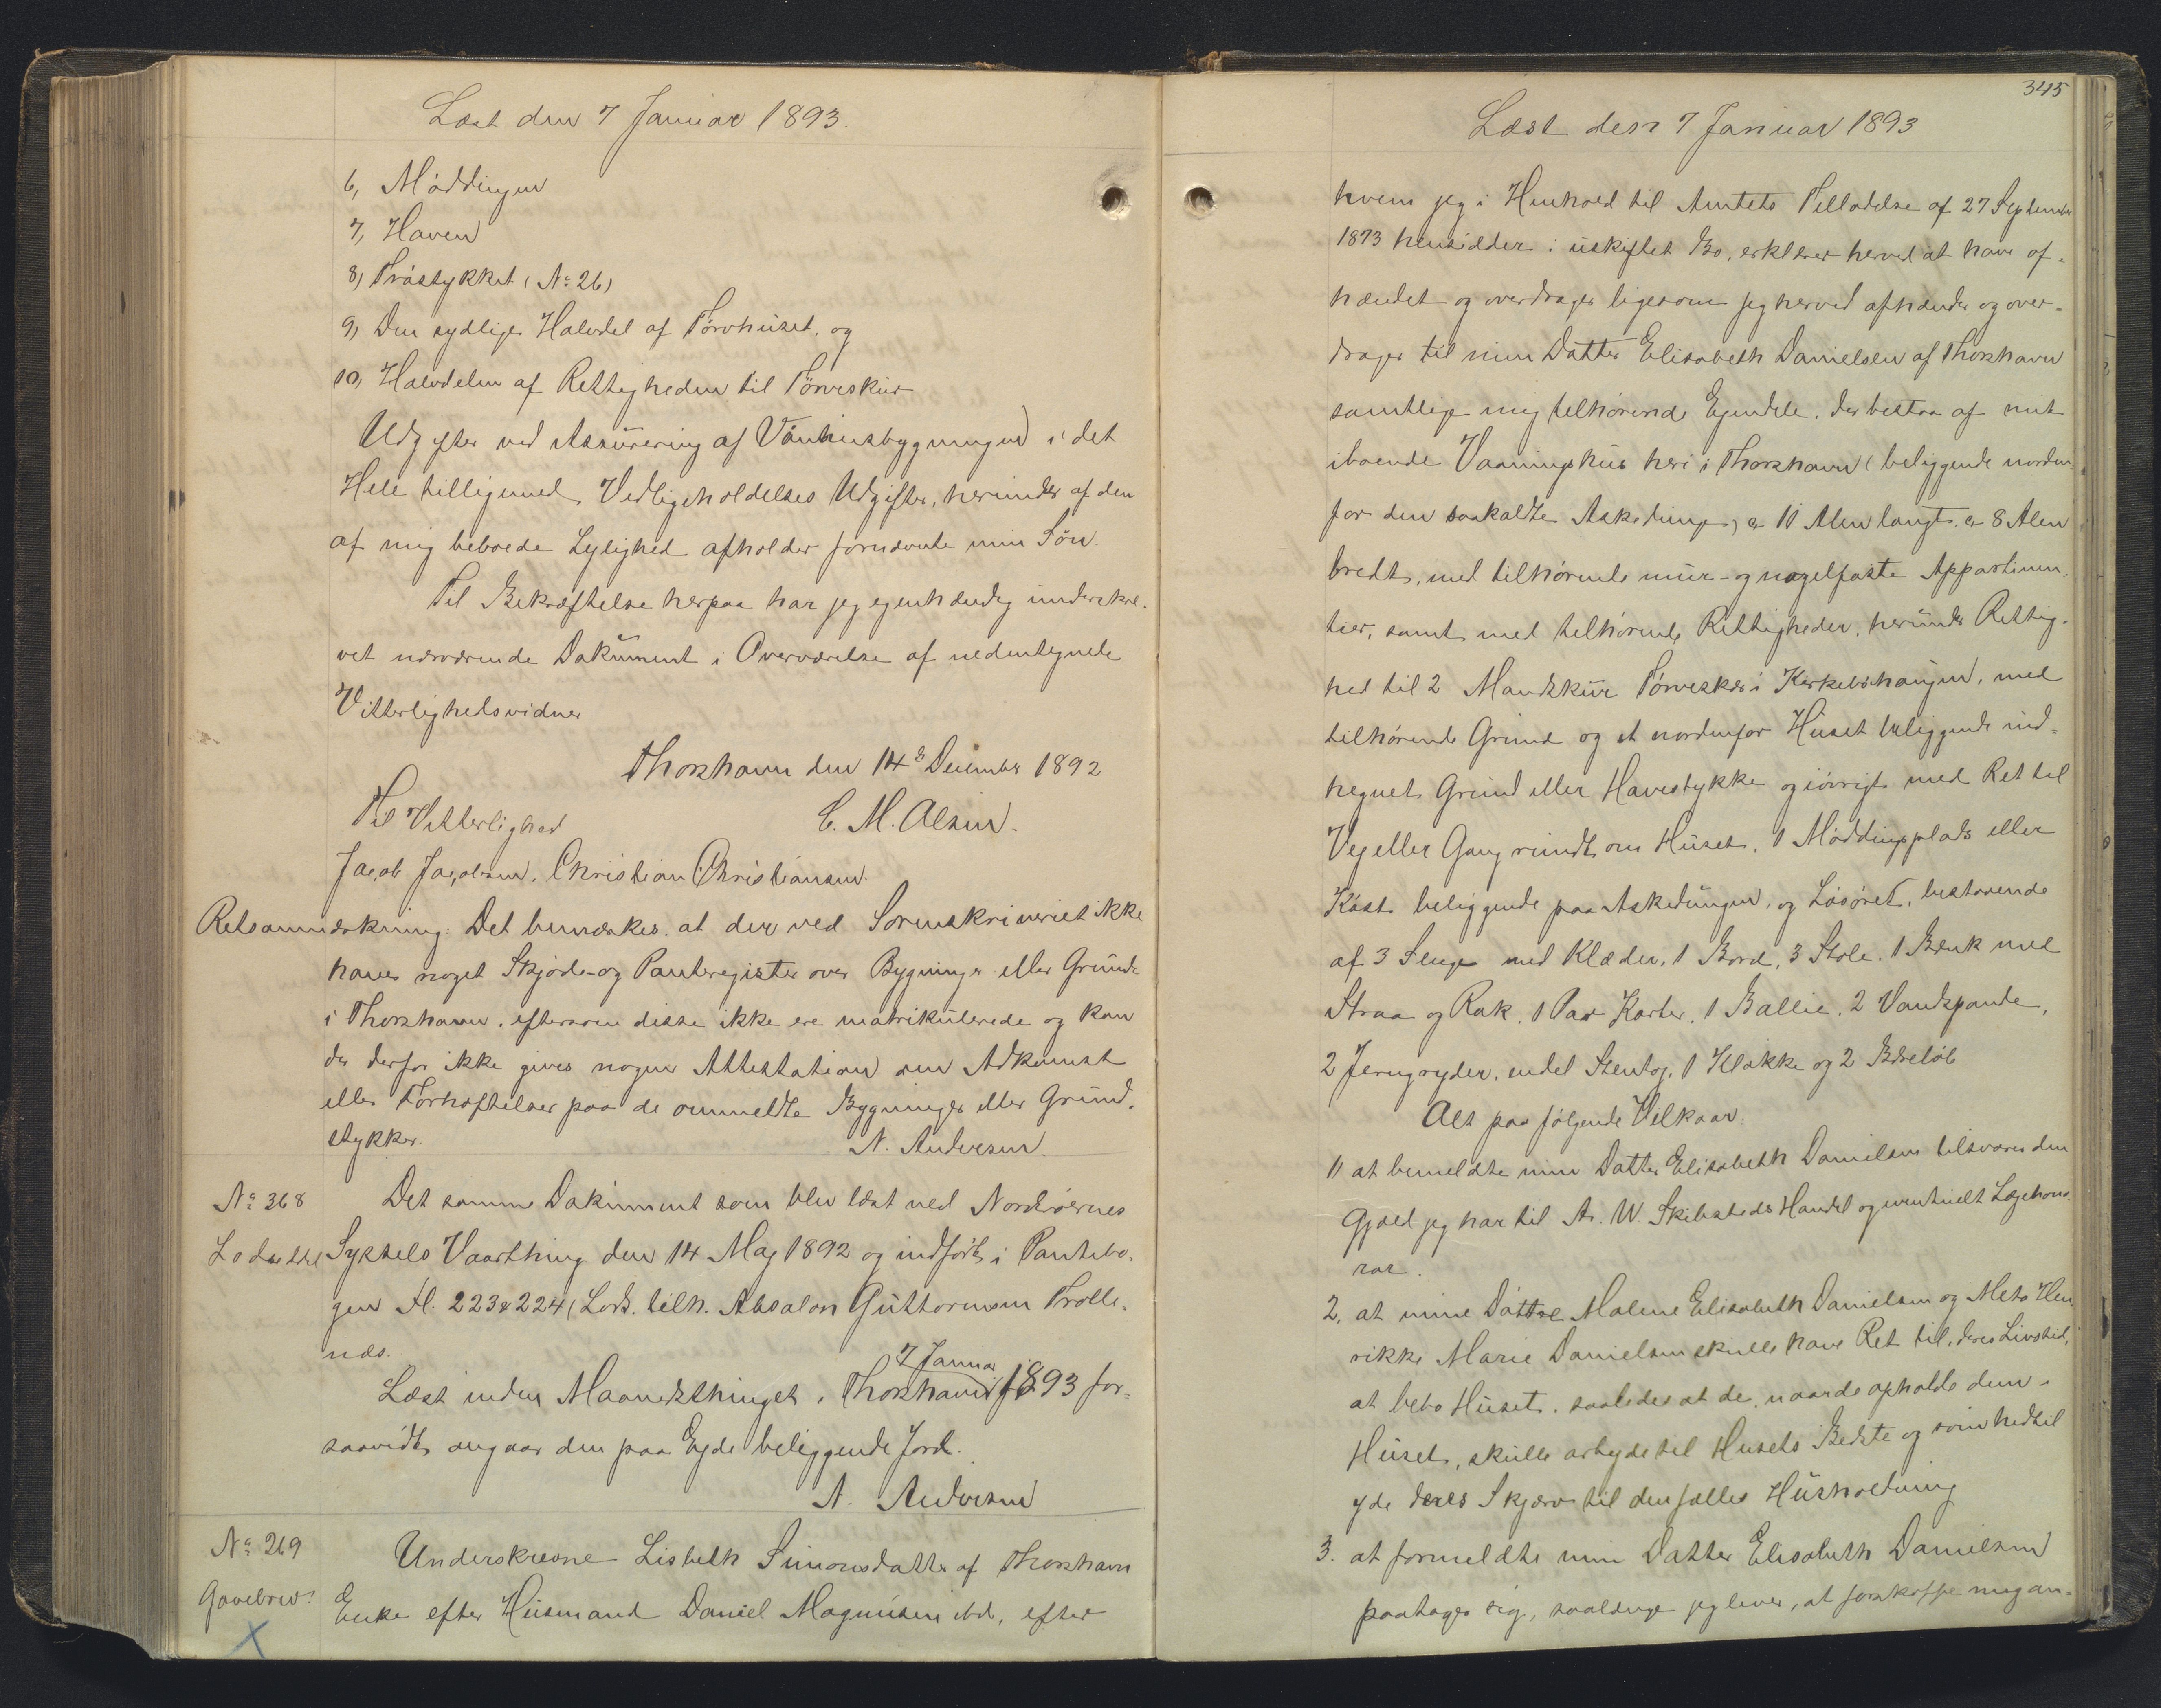 Læst den 7 Januar 1893.
6, Møddingen
7, Haven
8, Trøstykket (No 26)
9, Den sydlige Halvdel af Tørvhuset, og
10, Halvdelen af Rettigheden til Tørveskur
Udgifter ved Assurering af Vaanhusbygningen i det
Hele tilligemed Vedligeholdelses Udgifter, herunder af den
af mig beboede Lejlighed afholder fornævnte min Søn.
Til Bekræftelse herpaa har jeg egenhændig underskre-
vet nærværende Dokument i Overværelse af nedentegnede
Vitterlighedsvidner
Thorshavn den 14de December 1892
Til Vitterlighed C. M. Olsen.
Jacob Jacobsen. Christian Christiansen.
Retsanmærkning: Det bemærkes, at der ved Sorenskriveriet ikke
haves noget Skjøde- og Panteregister over Bygninger eller Grunde
i Thorshavn, eftersom disse ikke ere matrikulerede og kan
der derfor ikke gives nogen Attestation om Adkomst
eller Forhæftelser paa de ommeldte Bygninger eller Grund-
stykker.
N. Andersen.
No 368 Det samme Dokument som blev læst ved Norderøernes
Lodseddel Syssels Vaarthing den 14 Maj 1892 og indført i Pantebo-
gen Fl. 223 & 224 (Lods. tilh. Absalon Guttormsen Trølle-
næs.
7 Januar
Læst inden Maanedsthinget i Thorshavn 1893 for-
saavidt angaar den paa Ejde beliggende Jord.
N. Andersen
No 269 Underskrevne Lisbeth Simonsdatter af Thorshavn
Gavebrev. Enke efter Husmand Daniel Magnusen ibd, efter
X
345
Læst den 7 Januar 1893
hvem jeg i Henhold til Amtets Tilladelse af 27 September
1873 hensidder i uskiftet Bo, erklærer herved at have af-
hændet og overdraget ligesom jeg herved afhænder og over-
drager til min Datter Elisabeth Danielsen af Thorshavn
samtlige mig tilhørende Ejendele, der bestaa af mit
iboende Vaaningshus her i Thorshavn (beliggende norden
for den saakaldte Askedunge, a 11 Alen langt, a 8 Alen
bredt, med tilhørende mur- og nagelfaste Appartinen-
tier, samt med tilhørende Rettigheder, herunder Rettig-
hed til 2 Mandskur Tørveskær i Kirkebøhaugen, med
tilhørende Grund og et nordenfor Huset beliggende ind-
hegnet Grund eller Havestykke og iøvrigt med Ret til
Vej eller Gang rundt om Huset. 1 Møddingsplads eller
Kast beliggende paa Askedungen, og Løsøret, bestaaende
af 3 Senge med Klæder, 1 Bord, 3 Stole, 1 Bænk med
Straa og Rak, 1 Par Karter, 1 Ballie, 2 Vandspande,
2 Jerngryder, endel Stentøj, 1 Klokke og 2 Bæreløb
Alt paa følgende Vilkaar:
1, at bemeldte min Datter Elisabeth Danielsen tilsvarer den
Gjæld jeg har til A. W. Skibsteds Handel og eventuelt Lægehono-
rar.
2, at mine Døttre Malene Elisabeth Danielsen og Meta Hen-
rikke Marie Danielsen skulle have Ret til, deres Livstid,
at bebo Huset, saaledes at de, naar de opholde dem i
Huset, skulle arbejde til Husets Bedste og som hidtil
yde deres Skjærv til den fælles Husholdning
3. at formeldte min Datter Elisabeth Danielsen
paatager sig, saalænge jeg lever, at forskaffe mig an-